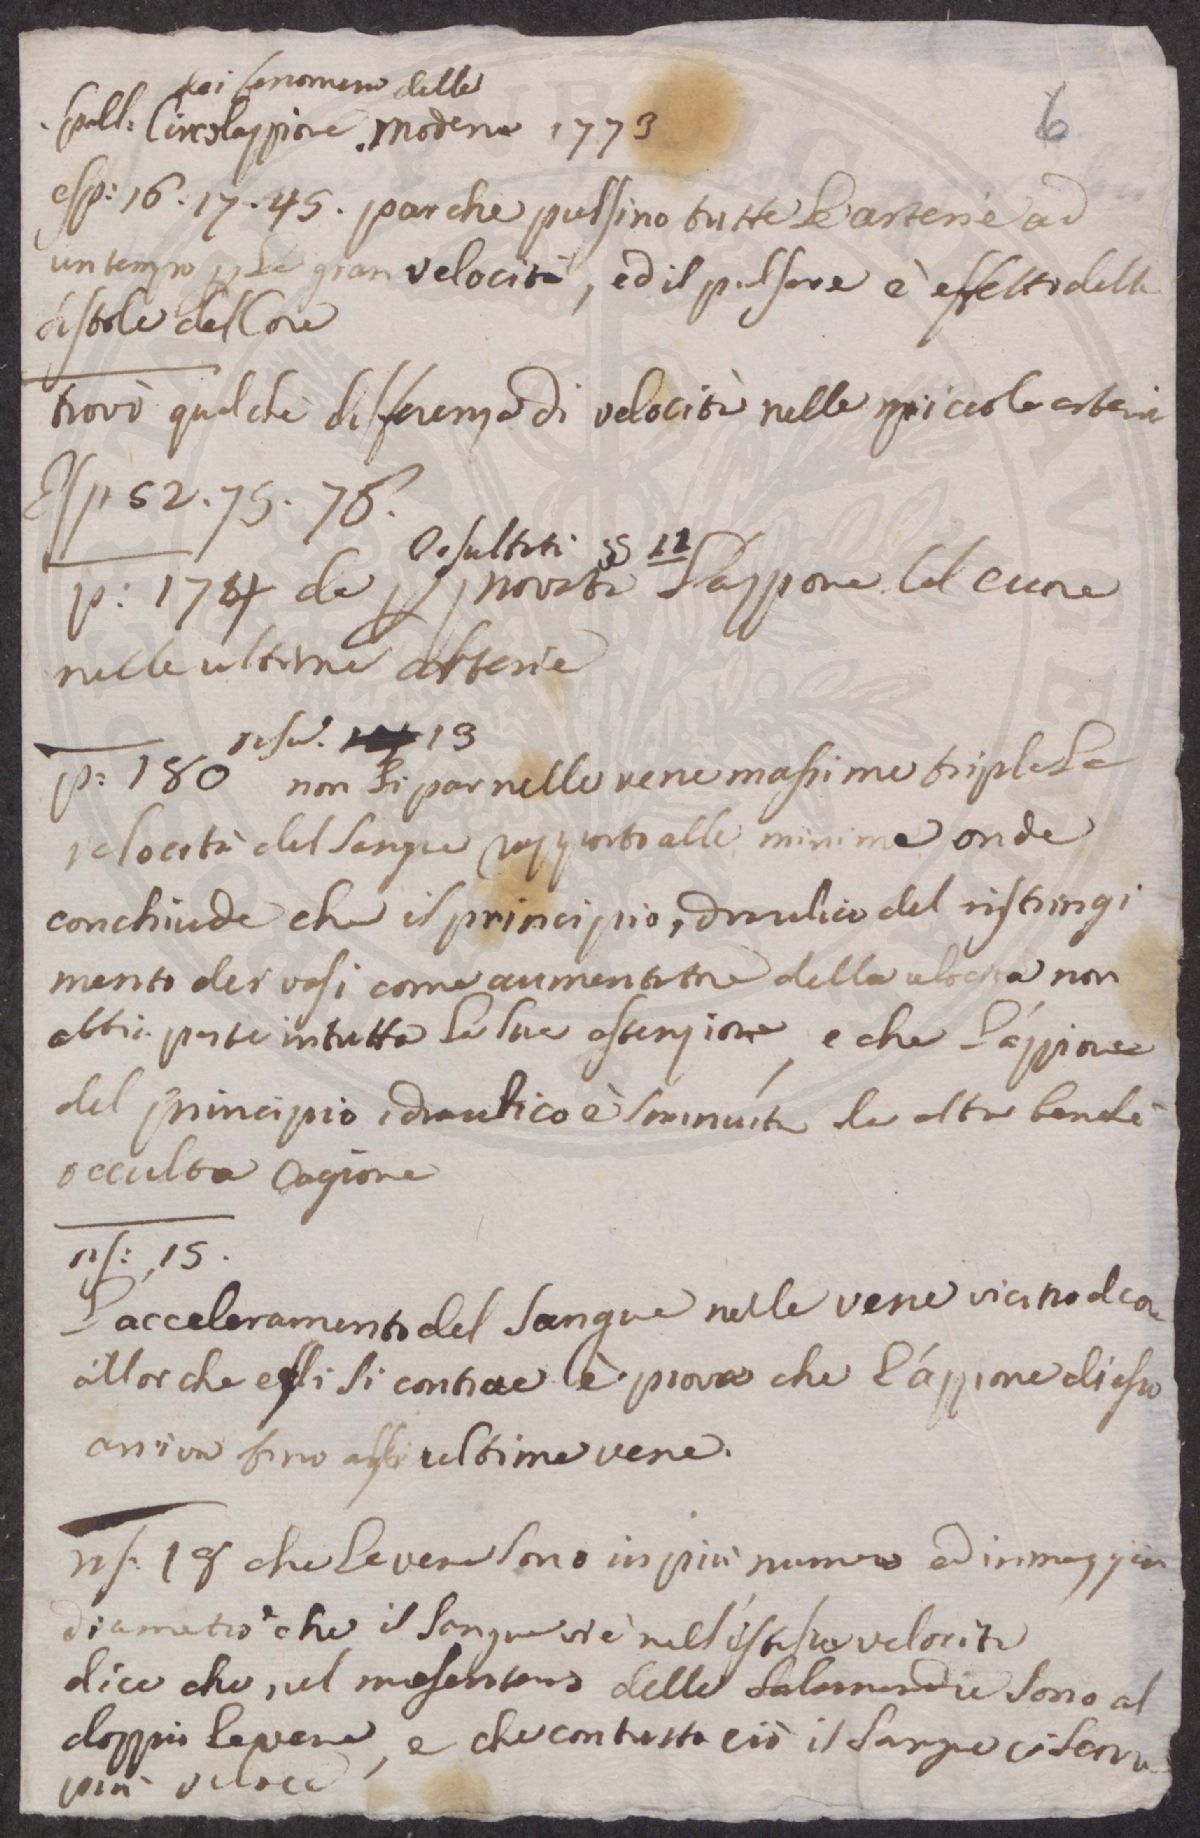 6
dei fenomeni della
Spall: Circolazzione Modena 1773
esp: 16. 17. 45. par che pulsino tutte le arterie ad
un tempo p la gran velocità, ed il pulsare è effetto della
sistole del Core
trovò qualche differenza di velocità nelle piccole arterie
Esp 52. 75. 76.
Resultati 11
p: 174 da provata l'azzione del cuore
nelle ultime arterie
resul. 13
p: 180 non si par nelle vene massime tripla la
velocità del sangue rapporto alle minime onde
conchiude che il principio idraulico del ristringi
mento dei vasi come aumentatore della velocità non
abbia parte in tutta la sua estenzione, e che l'azzione
del principio idraulico è sminuita da altra benchè
occulta Cagione
ris: 15.
L'acceleramento del Sangue nelle vene vicino al core
allor che egli si contrae è prova che l'azzione di esso
arriva fino alle ultime vene.
ris. 18 che le vene sono in più numero ed in maggior
diametro che il sangue vi è nell'istessa velocità
dice che nel mesenterio delle Salamandre sono al
doppio le vene, e che con tutto ciò il sangue vi scorre
più veloce